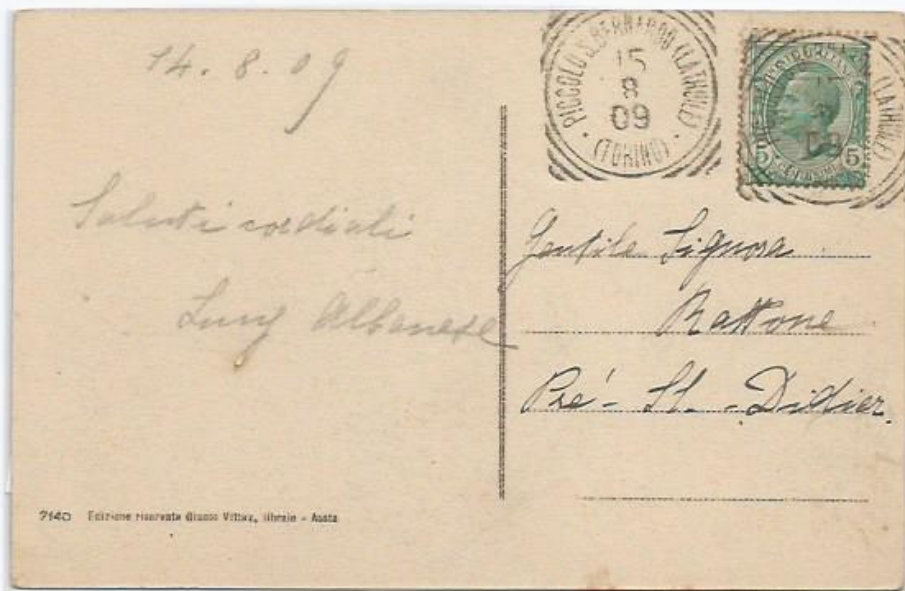 14. 8. 09
PICCOLO S. BERNARDO (LA THUILE)
15
8
09
(TORINO)
(LA THUILE)
09
5 5
Saluti cordiali
Luig Albanese
Gentile Signora
Rattone
Pré - St. - Didier.
7140 Edizione riservata Giocos Vittaz, libraio - Aosta